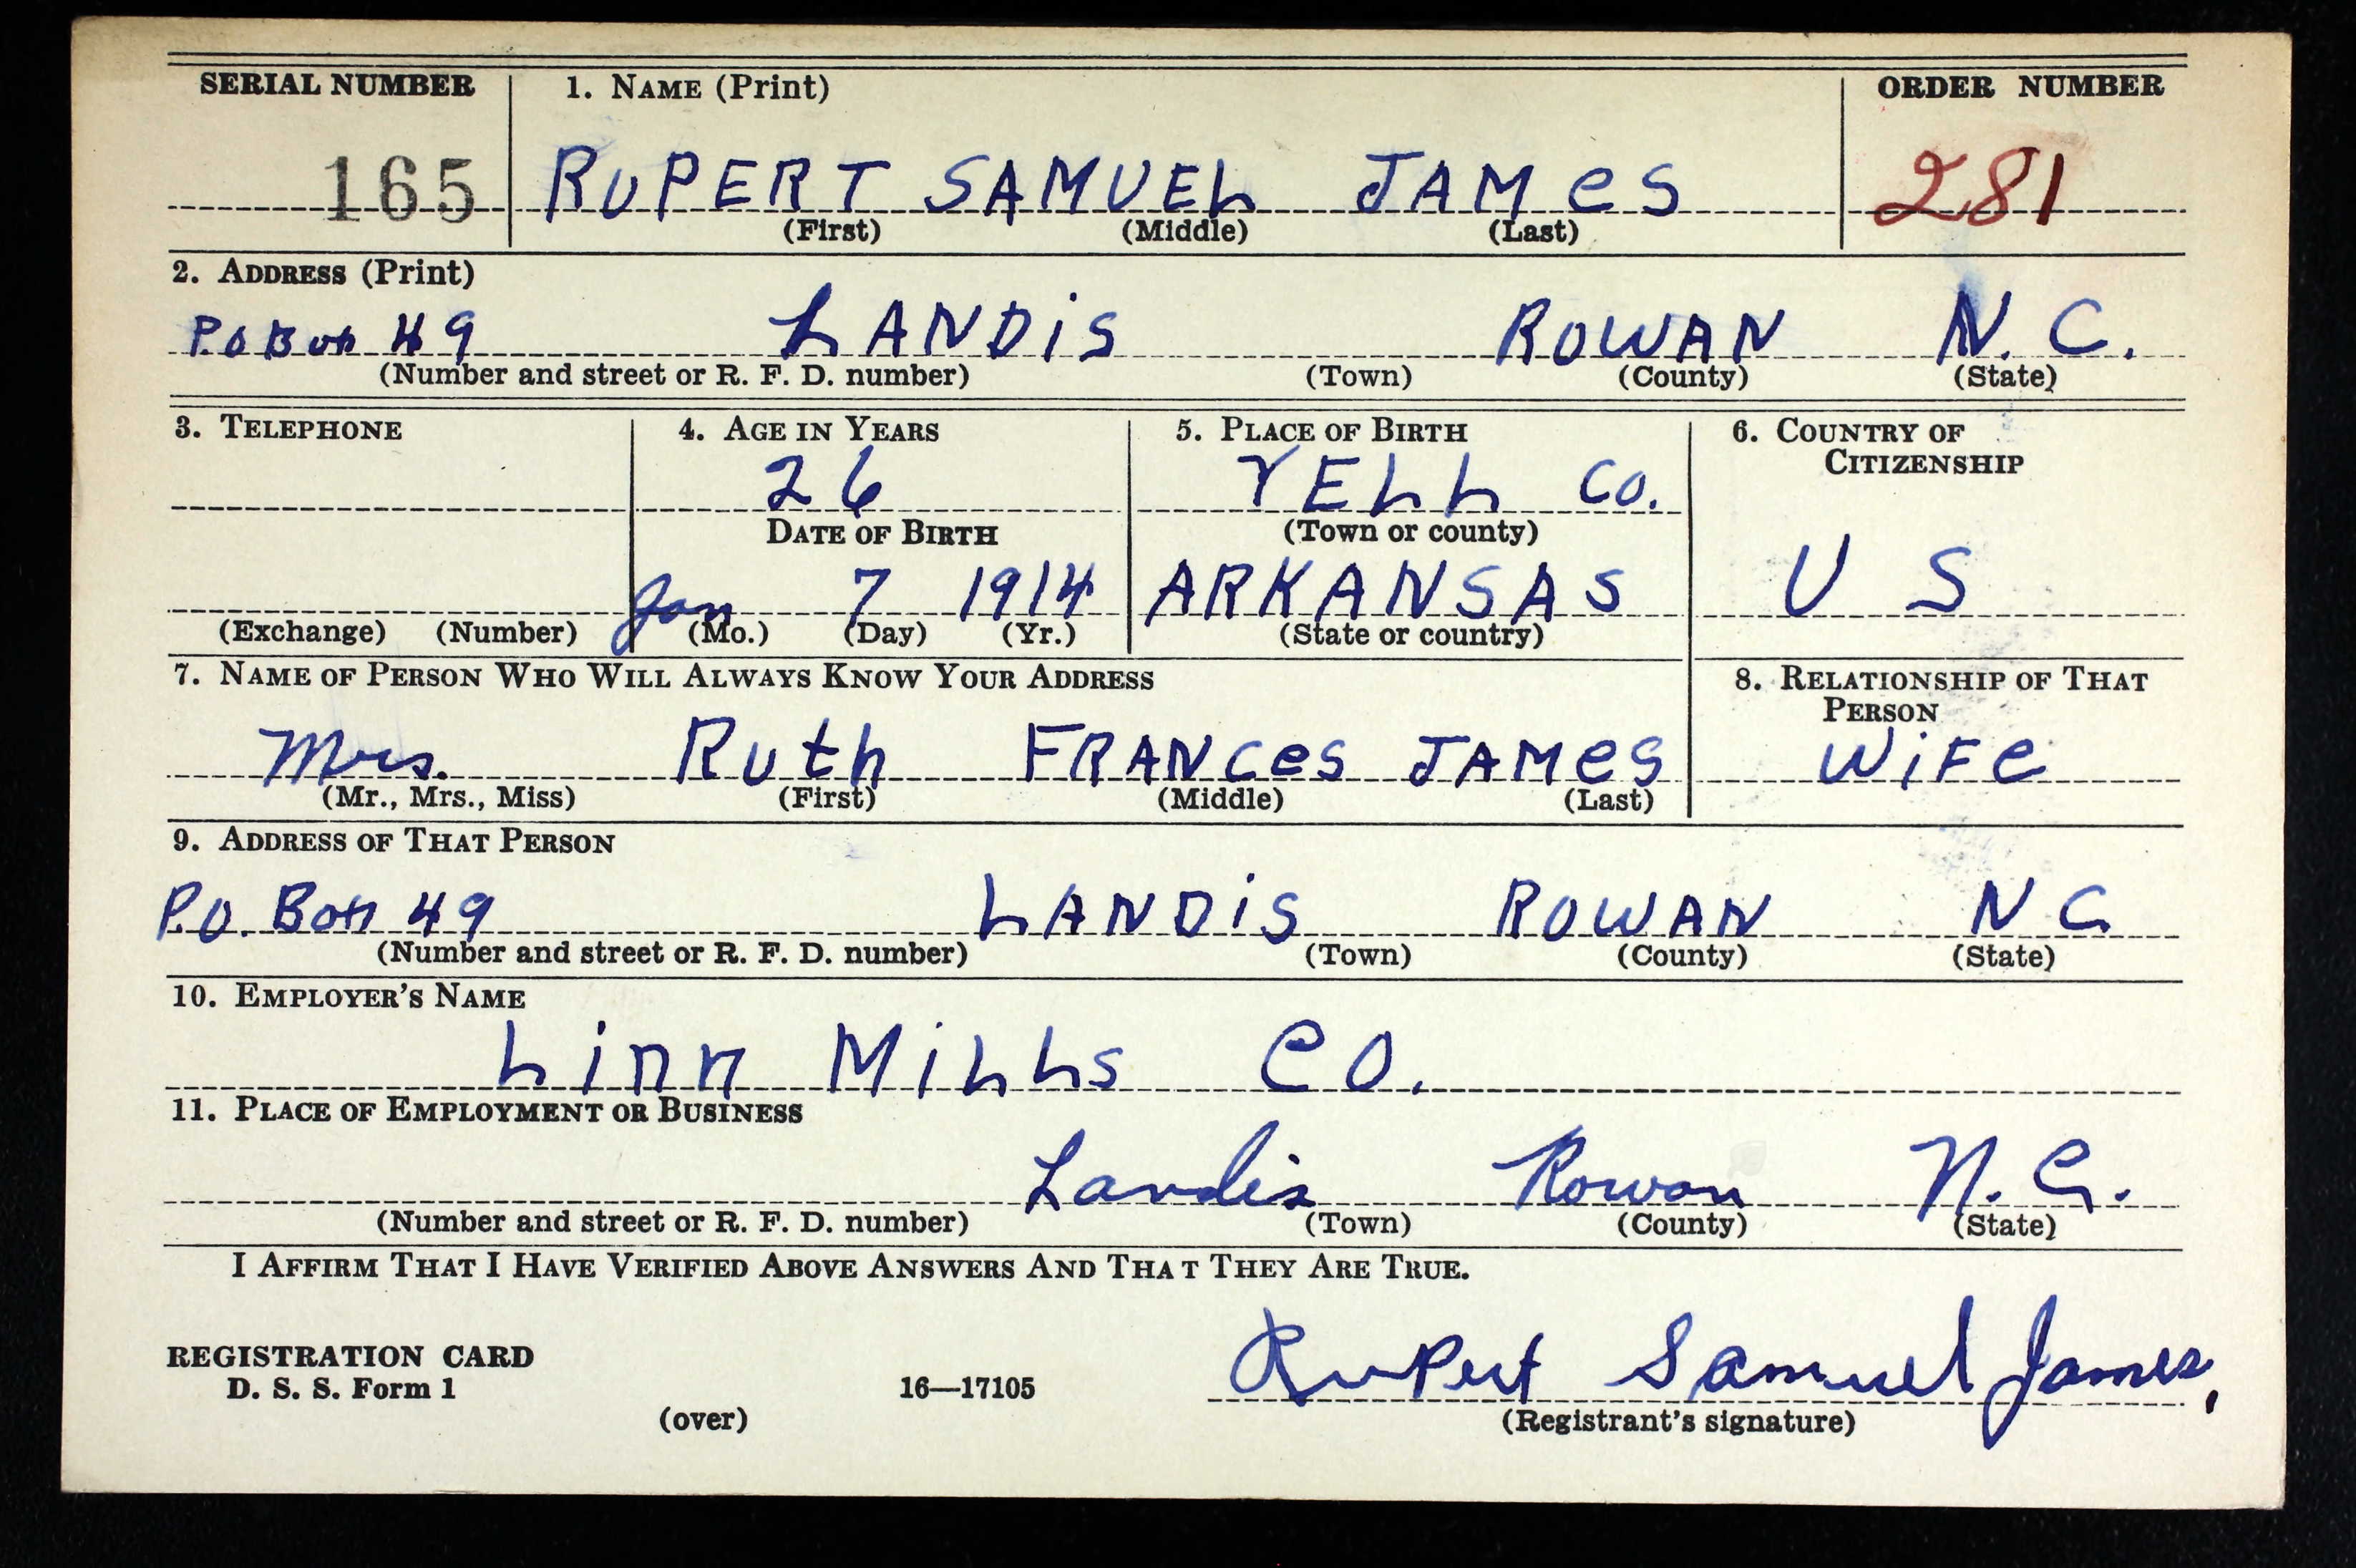 SERIAL NUMBER 1. NAME (Print) ORDER NUMBER
165 RUPERT SAMUEL JAMES 281
(First) (Middle) (Last)
2. ADDRESS (Print)
P.O Box 49 LANDiS ROWAN N. C.
(Number and street or R. F. D. number) (Town) (County) (State)
3. TELEPHONE 4. AGE IN YEARS 5. PLACE OF BIRTH 6. COUNTRY OF CITIZENSHIP
26 YELL CO.
DATE OF BIRTH (Town or county)
Jan 7 1914 ARKANSAS U S
(Exchange) (Number) (Mo.) (Day) (Yr.) (State or country)
7. NAME OF PERSON WHO WILL ALWAYS KNOW YOUR ADDRESS 8. RELATIONSHIP OF THAT PERSON
Mrs. Ruth FRANCes JAMes WiFe
(Mr., Mrs., Miss) (First) (Middle) (Last)
9. ADDRESS OF THAT PERSON
P.O. Box 49 LANDiS ROWAN N C
(Number and street or R. F. D. number) (Town) (County) (State)
10. EMPLOYER'S NAME
Linn MiLLs CO.
11. PLACE OF EMPLOYMENT OR BUSINESS
Landis Rowan N. C.
(Number and street or R. F. D. number) (Town) (County) (State)
I AFFIRM THAT I HAVE VERIFIED ABOVE ANSWERS AND THAT THEY ARE TRUE.
REGISTRATION CARD
D. S. S. Form 1 16—17105 Rupert Samuel James,
(over) (Registrant's signature)